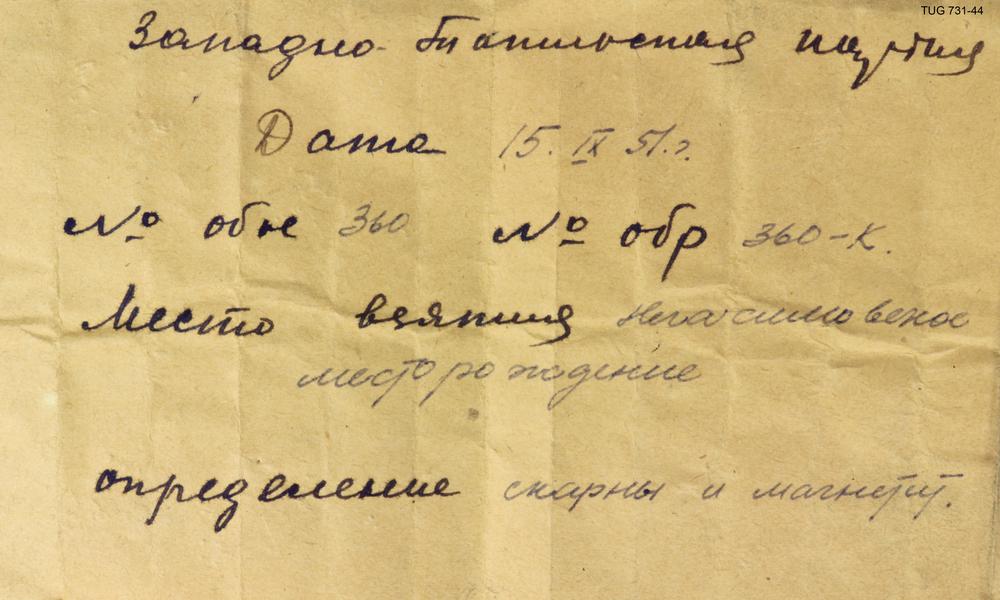 TUG 731-44
Западно- партия
Дата 15. IX 51.г.
№ обн 360 № обр 360-К.
Место взятия
месторождение
определение скарны и магнетит.